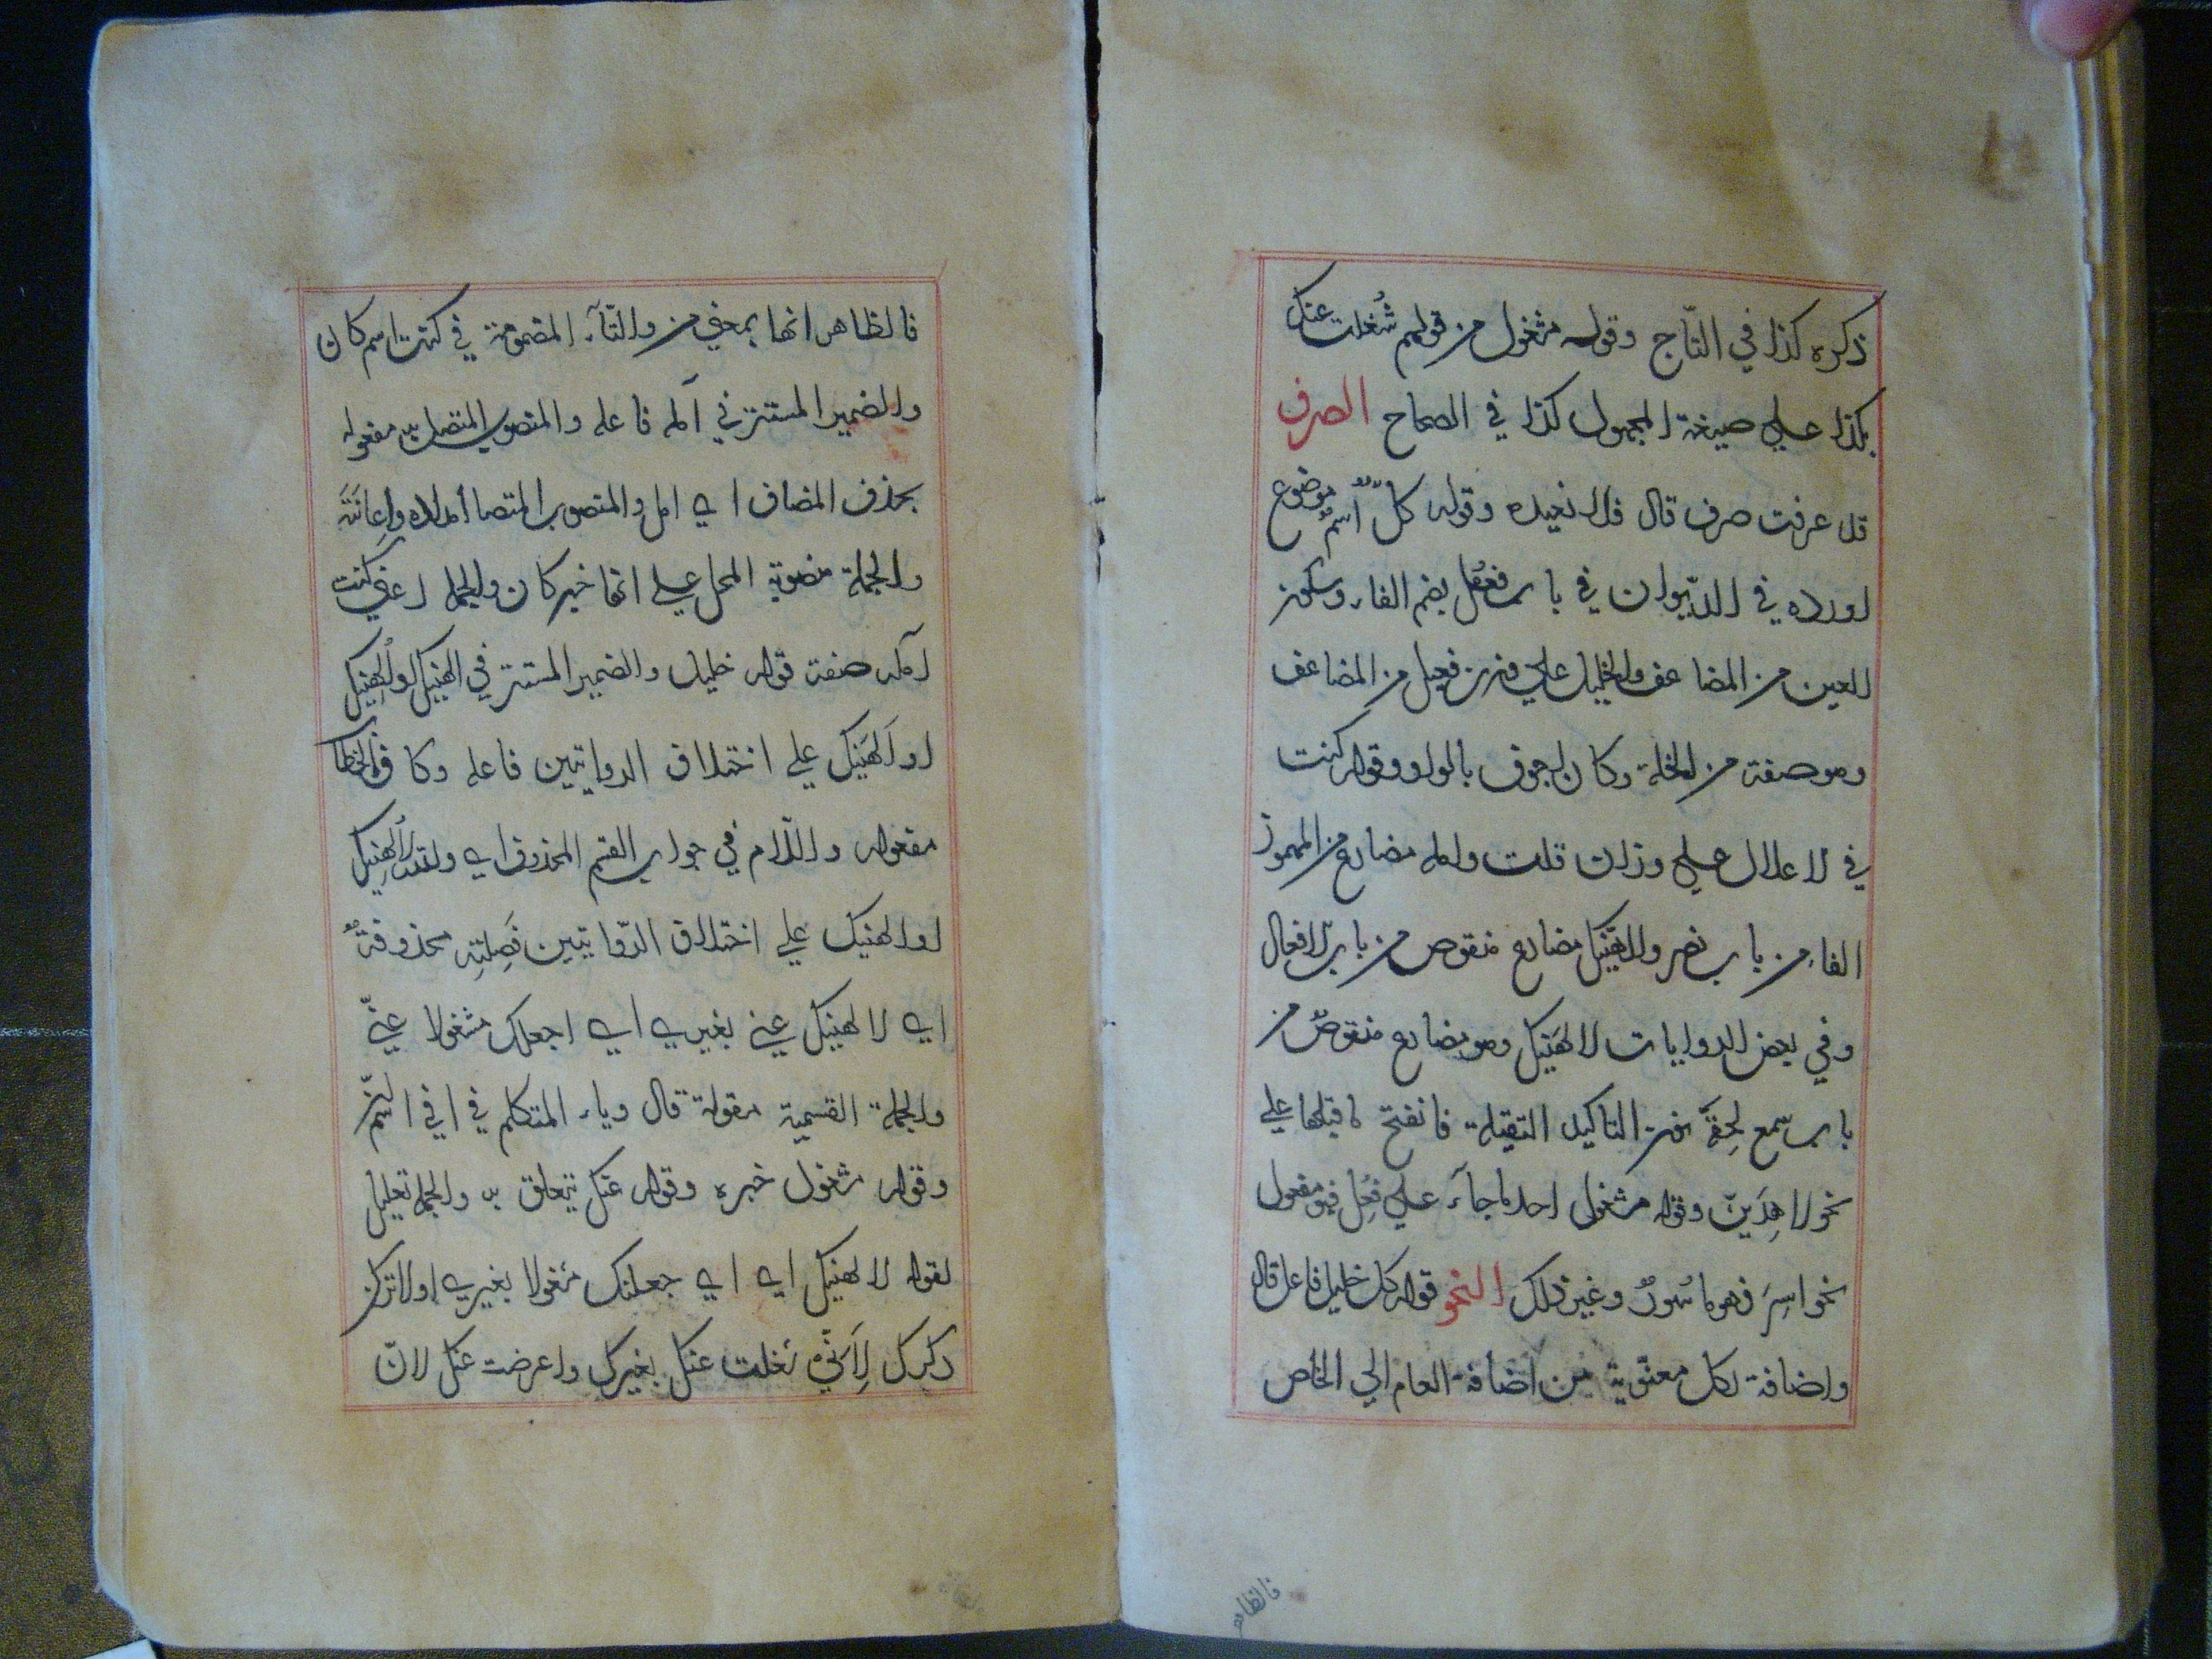 ذكره كذا في التّاج وقوله مشغول من قولهم شُغلت عنك
بكذا علي صيغة المجهول كذا في الصحاح الصرف
قد عرفت صرف قال فلا نعيده وقوله كلّ اسم موضوع
اورده في الديوان في باب فُعْل بضم الفاء وسكون
العين من المضاعف والخليل علي وزن فعيل من المضاعف
وهو صفة من الخلة وكان اجوف بالواو وقوله كنت
في الاعلال علي وزان قلت وامله مضارع من المهموز
الفاء من باب نصر والهينك مضارع منقوص من باب الافعال
وفي بعض الروايات لالهَينك وهو مضارع منقوص من
باب سمع لحقه نون التاكيد الثقيلة فانفتح ما قبلها علي
نحو لاهدِينّ وقوله مشغول احد ما جاء علي فُعِل فهو مفعول
نحو اسِرَ فهو ماسُورٌ وغير ذلك النحو قوله كل خليل فاعل قال
واضافة كل معنوية من اضافة العام الي الخاص
فالظاهر
فالظاهر انها بمعني من والتاء المضمومة في كنت اسم كان
والضمير المستتر في آمله فاعله والمنصوب المتصل به مفعوله
بحذف المضاف اي امل والمنصوب المتصل امداده واِعانَتَهُ
والجملة منصوبة المحل علي انها خبر كان والجملة اعني كنت
آمله صفة قوله خليل والضمير المستتر في الهينك او اُلهِينك
او اَلهَينك علي اختلاف الروايتين فاعله وكاف الخطاب
مفعوله واللام في جواب القسم المحذوف اي والله لاُلهِينك
او الهينك علي اختلاف الروايتين فَصِلَتِه محذوفةٌ
اي لا لهينك عني بغيري اي اجعلك مشغولا عنّي
والجملة القسمية مقولة قال وياء المتكلم في اني اسم انّ
وقوله مشغول خبره وقوله عنك يتعلق به والجملة تعليل
لقوله لا لهينك اي اي جعلنك مشغولا بغيري او لاتركن
ذكرك لِاَنّي شغلت عنك بغيرك واعرضت عنك لانّ